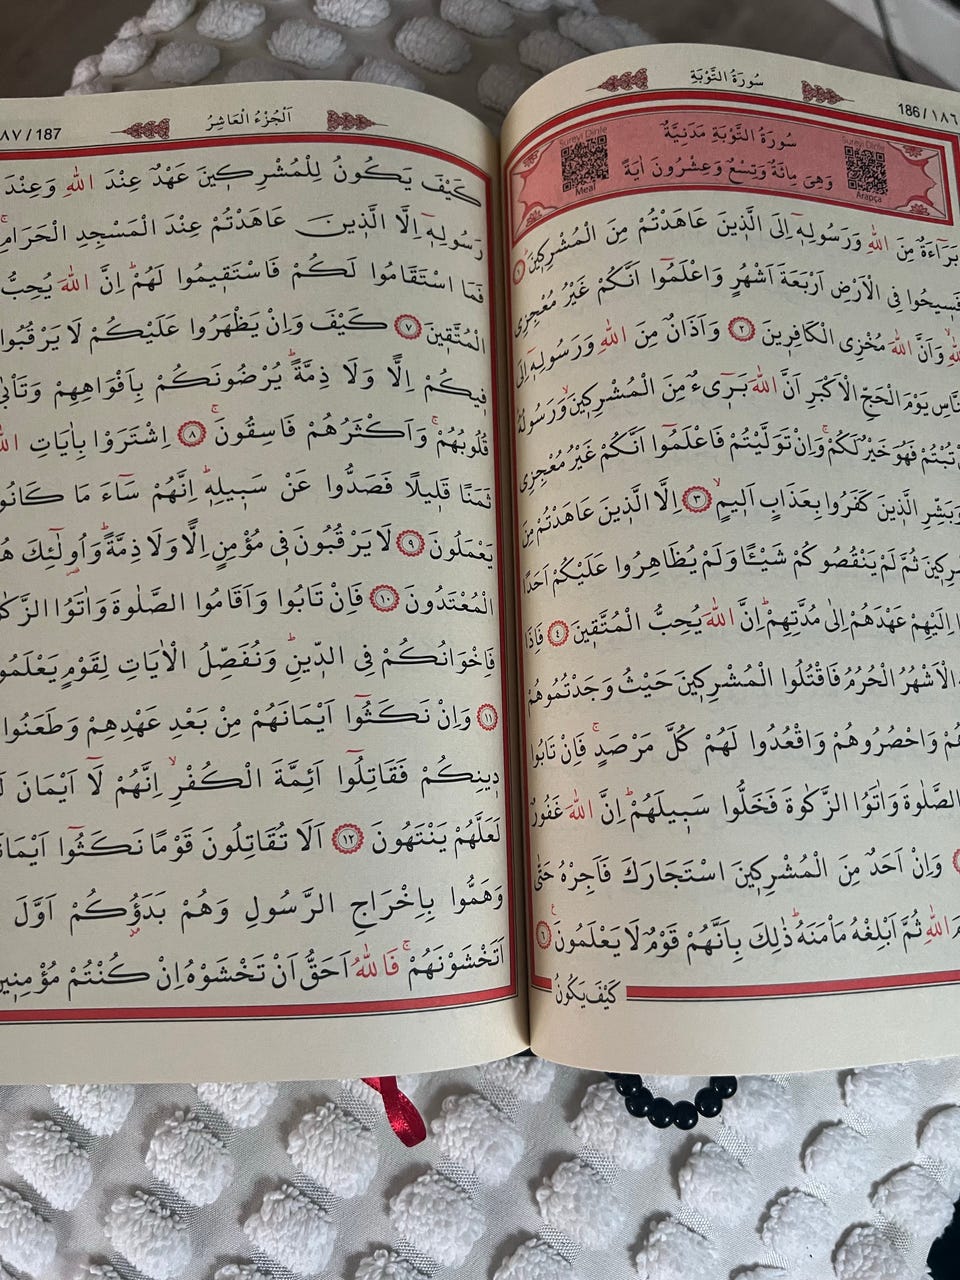 سُورَةُ التَّوْبَةِ
186 / ١٨٦
Sureyi Dinle
Arapça
سُورَةُ التَّوْبَةِ مَدَنِيَّةٌ
وَهِىَ مِائَةٌ وَتِسْعٌ وَعِشْرُونَ اٰيَةً
Sureyi Dinle
Meal
بَرَٓاءَةٌ مِنَ اللّٰهِ وَرَسُولِهٖٓ اِلَى الَّذٖينَ عَاهَدْتُمْ مِنَ الْمُشْرِكٖينَ ١
فَسٖيحُوا فِى الْاَرْضِ اَرْبَعَةَ اَشْهُرٍ وَاعْلَمُٓوا اَنَّكُمْ غَيْرُ مُعْجِزِى
اللّٰهِ وَاَنَّ اللّٰهَ مُخْزِى الْكَافِرٖينَ ٢ وَاَذَانٌ مِنَ اللّٰهِ وَرَسُولِهٖٓ اِلَى
النَّاسِ يَوْمَ الْحَجِّ الْاَكْبَرِ اَنَّ اللّٰهَ بَرٖٓىءٌ مِنَ الْمُشْرِكٖينَ وَرَسُولُهُ
تُبْتُمْ فَهُوَ خَيْرٌ لَكُمْ وَاِنْ تَوَلَّيْتُمْ فَاعْلَمُٓوا اَنَّكُمْ غَيْرُ مُعْجِزِى
وَبَشِّرِ الَّذٖينَ كَفَرُوا بِعَذَابٍ اَلٖيمٍ ٣ اِلَّا الَّذٖينَ عَاهَدْتُمْ مِنَ
ثُمَّ لَمْ يَنْقُصُوكُمْ شَيْـًٔا وَلَمْ يُظَاهِرُوا عَلَيْكُمْ اَحَدًا
اِلَيْهِمْ عَهْدَهُمْ اِلٰى مُدَّتِهِمْ اِنَّ اللّٰهَ يُحِبُّ الْمُتَّقٖينَ ٤ فَاِذَا
الْاَشْهُرُ الْحُرُمُ فَاقْتُلُوا الْمُشْرِكٖينَ حَيْثُ وَجَدْتُمُوهُمْ
وَاحْصُرُوهُمْ وَاقْعُدُوا لَهُمْ كُلَّ مَرْصَدٍ فَاِنْ تَابُوا
الصَّلٰوةَ وَاٰتَوُا الزَّكٰوةَ فَخَلُّوا سَبٖيلَهُمْ اِنَّ اللّٰهَ غَفُورٌ
وَاِنْ اَحَدٌ مِنَ الْمُشْرِكٖينَ اسْتَجَارَكَ فَاَجِرْهُ حَتّٰى
اللّٰهِ ثُمَّ اَبْلِغْهُ مَاْمَنَهُ ذٰلِكَ بِاَنَّهُمْ قَوْمٌ لَا يَعْلَمُونَ ٦
كَيْفَ يَكُونُ
اَلْجُزْءُ الْعَاشِرُ
187
كَيْفَ يَكُونُ لِلْمُشْرِكٖينَ عَهْدٌ عِنْدَ اللّٰهِ وَعِنْدَ
رَسُولِهٖٓ اِلَّا الَّذٖينَ عَاهَدْتُمْ عِنْدَ الْمَسْجِدِ الْحَرَامِ
فَمَا اسْتَقَامُوا لَكُمْ فَاسْتَقٖيمُوا لَهُمْ اِنَّ اللّٰهَ يُحِبُّ
الْمُتَّقٖينَ ٧ كَيْفَ وَاِنْ يَظْهَرُوا عَلَيْكُمْ لَا يَرْقُبُوا
فٖيكُمْ اِلًّا وَلَا ذِمَّةً يُرْضُونَكُمْ بِاَفْوَاهِهِمْ وَتَاْبٰى
قُلُوبُهُمْ وَاَكْثَرُهُمْ فَاسِقُونَ ٨ اِشْتَرَوْا بِاٰيَاتِ اللّٰهِ
ثَمَنًا قَلٖيلًا فَصَدُّوا عَنْ سَبٖيلِهٖ اِنَّهُمْ سَٓاءَ مَا كَانُوا
يَعْمَلُونَ ٩ لَا يَرْقُبُونَ فٖى مُؤْمِنٍ اِلًّا وَلَا ذِمَّةً وَاُولٰٓئِكَ هُمُ
الْمُعْتَدُونَ ١٠ فَاِنْ تَابُوا وَاَقَامُوا الصَّلٰوةَ وَاٰتَوُا الزَّكٰوةَ
فَاِخْوَانُكُمْ فِى الدّٖينِ وَنُفَصِّلُ الْاٰيَاتِ لِقَوْمٍ يَعْلَمُونَ
١١ وَاِنْ نَكَثُٓوا اَيْمَانَهُمْ مِنْ بَعْدِ عَهْدِهِمْ وَطَعَنُوا
دٖينِكُمْ فَقَاتِلُٓوا اَئِمَّةَ الْكُفْرِ اِنَّهُمْ لَٓا اَيْمَانَ
لَعَلَّهُمْ يَنْتَهُونَ ١٢ اَلَا تُقَاتِلُونَ قَوْمًا نَكَثُٓوا اَيْمَانَهُمْ
وَهَمُّوا بِاِخْرَاجِ الرَّسُولِ وَهُمْ بَدَؤُكُمْ اَوَّلَ
اَتَخْشَوْنَهُمْ فَاللّٰهُ اَحَقُّ اَنْ تَخْشَوْهُ اِنْ كُنْتُمْ مُؤْمِنٖينَ